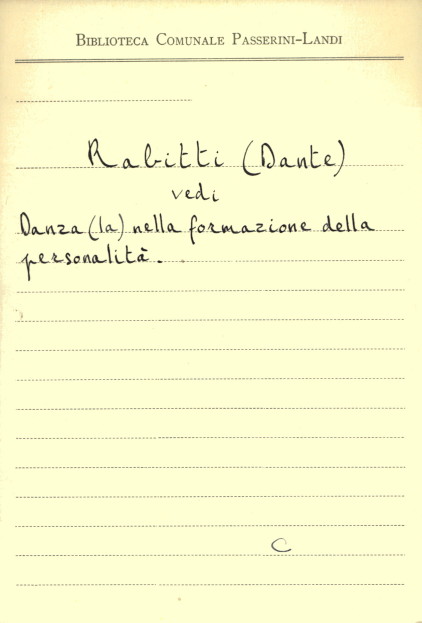 BIBLIOTECA COMUNALE PASSERINI-LANDI
Rabitti (Dante)
vedi
Danza (la) nella formazione della
personalità.
C